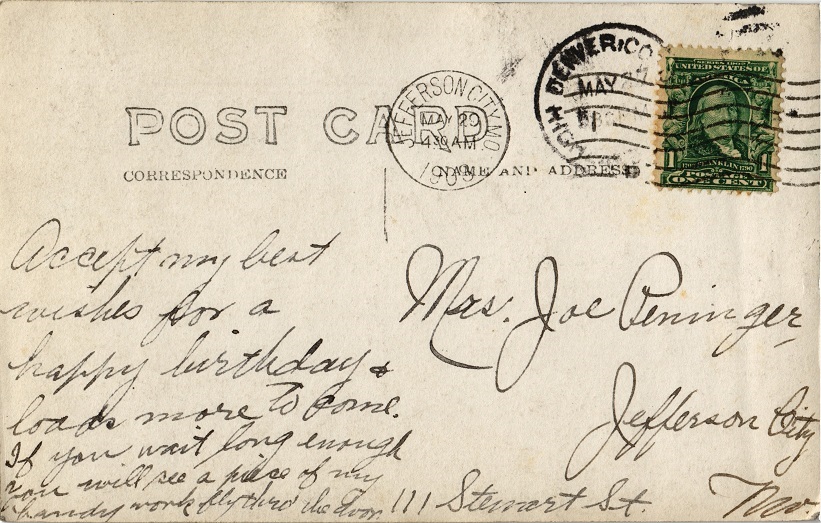 DENVER, COLO.
MAY 27
HIGH
SERIES 1902
UNITED STATES OF AMERICA
1 FRANKLIN 1
POSTAGE
ONE CENT
POST CARD
JEFFERSON CITY, MO.
MAY 29
4 30 AM
1909
CORRESPONDENCE
NAME AND ADDRESS
Accept my best
wishes for a
happy birthday &
loads more to come.
If you wait long enough
you will see a piece of my
handy work fly thro' the door
Mrs. Joe Peninger
Jefferson City
111 Stewart St. Mo